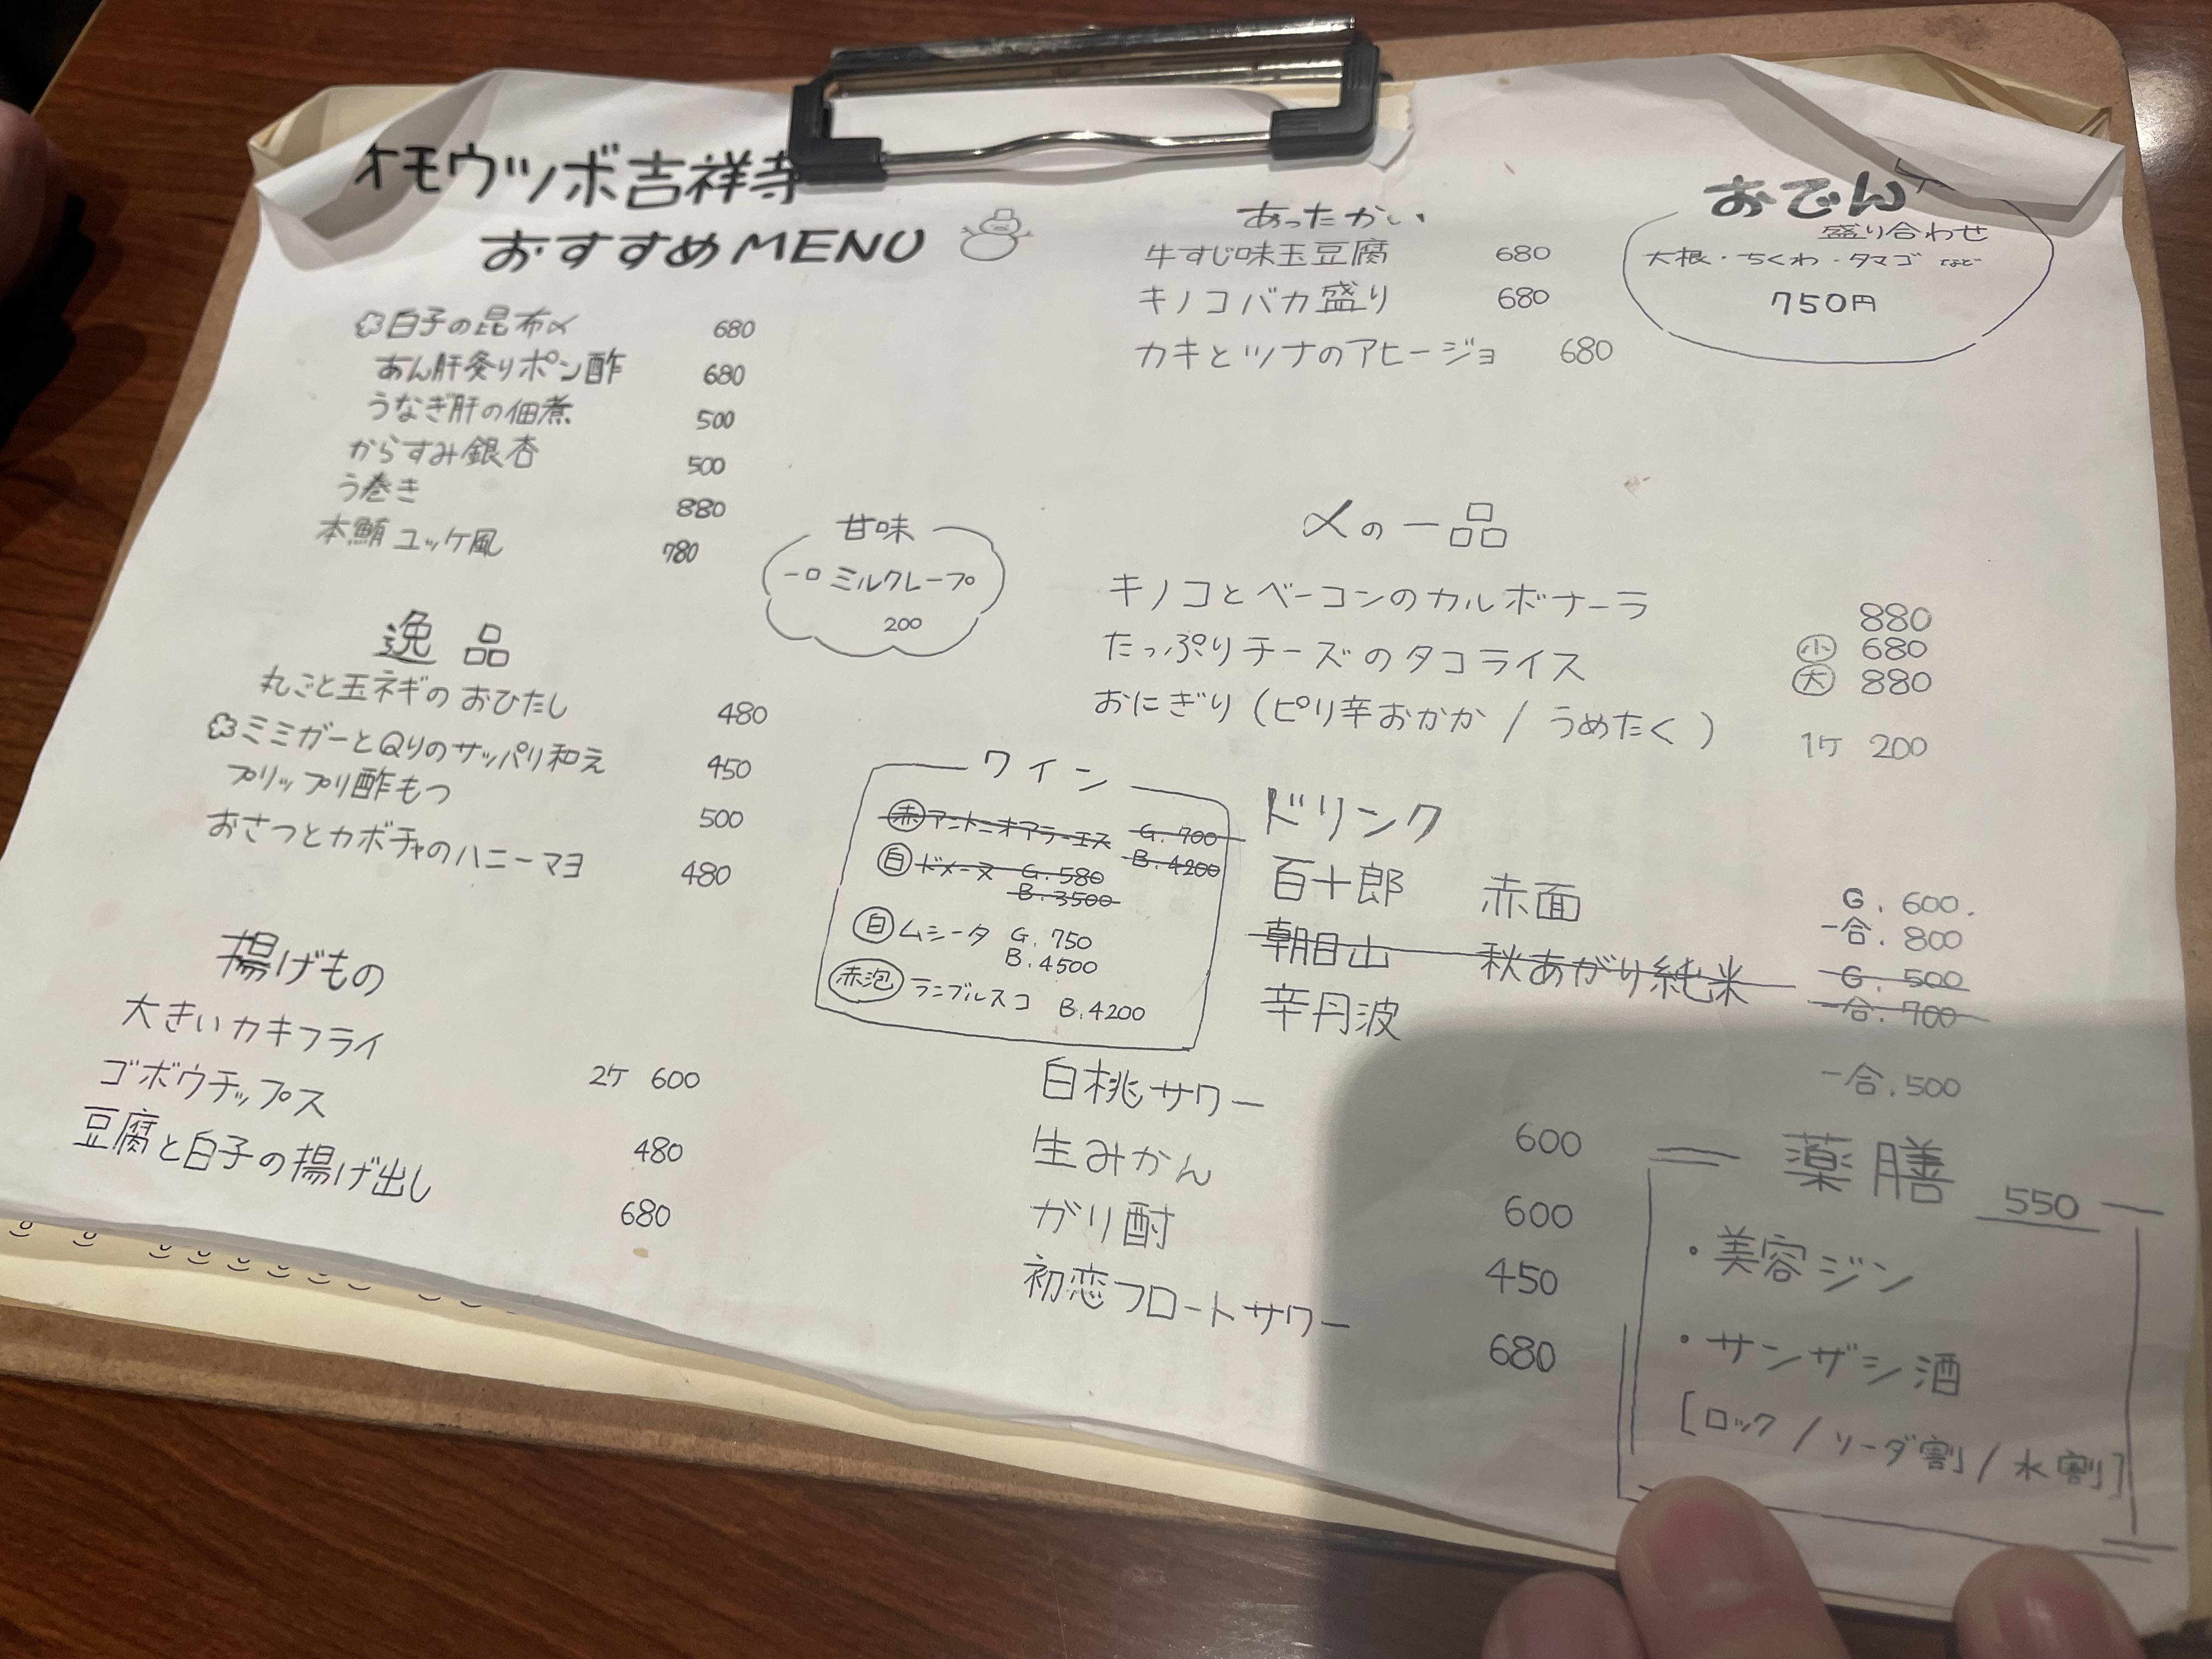 オモウツボ吉祥寺
おすすめMENU
白子の昆布〆 680
あん肝炙りポン酢 680
うなぎ肝の佃煮 500
からすみ銀杏 500
う巻き 880
本鮪ユッケ風 780
甘味
一口ミルクレープ
200
逸品
丸ごと玉ネギのおひたし 480
ミミガーとQりのサッパリ和え 450
プリップリ酢もつ 500
おさつとカボチャのハニーマヨ 480
揚げもの
大きいカキフライ 2ケ 600
ゴボウチップス 480
豆腐と白子の揚げ出し 680
あったかい
牛すじ味玉豆腐 680
キノコバカ盛り 680
カキとツナのアヒージョ 680
おでん
盛り合わせ
大根・ちくわ・タマゴ など
750円
〆の一品
キノコとベーコンのカルボナーラ 880
たっぷりチーズのタコライス 小 680
大 880
おにぎり(ピリ辛おかか / うめたく) 1ケ 200
ワイン
赤 アントニオアラーエス G. 700
B. 4200
白 ドメーヌ G. 580
B. 3500
白 ムシータ G. 750
B. 4500
赤泡 ランブルスコ B. 4200
ドリンク
百十郎 赤面 G. 600.
一合. 800
朝日山 秋あがり純米 G. 500
一合. 700
辛丹波 一合. 500
白桃サワー 600
生みかん 600
ガリ酎 450
初恋フロートサワー 680
薬膳 550
・美容ジン
・サンザシ酒
[ロック / ソーダ割 / 水割]